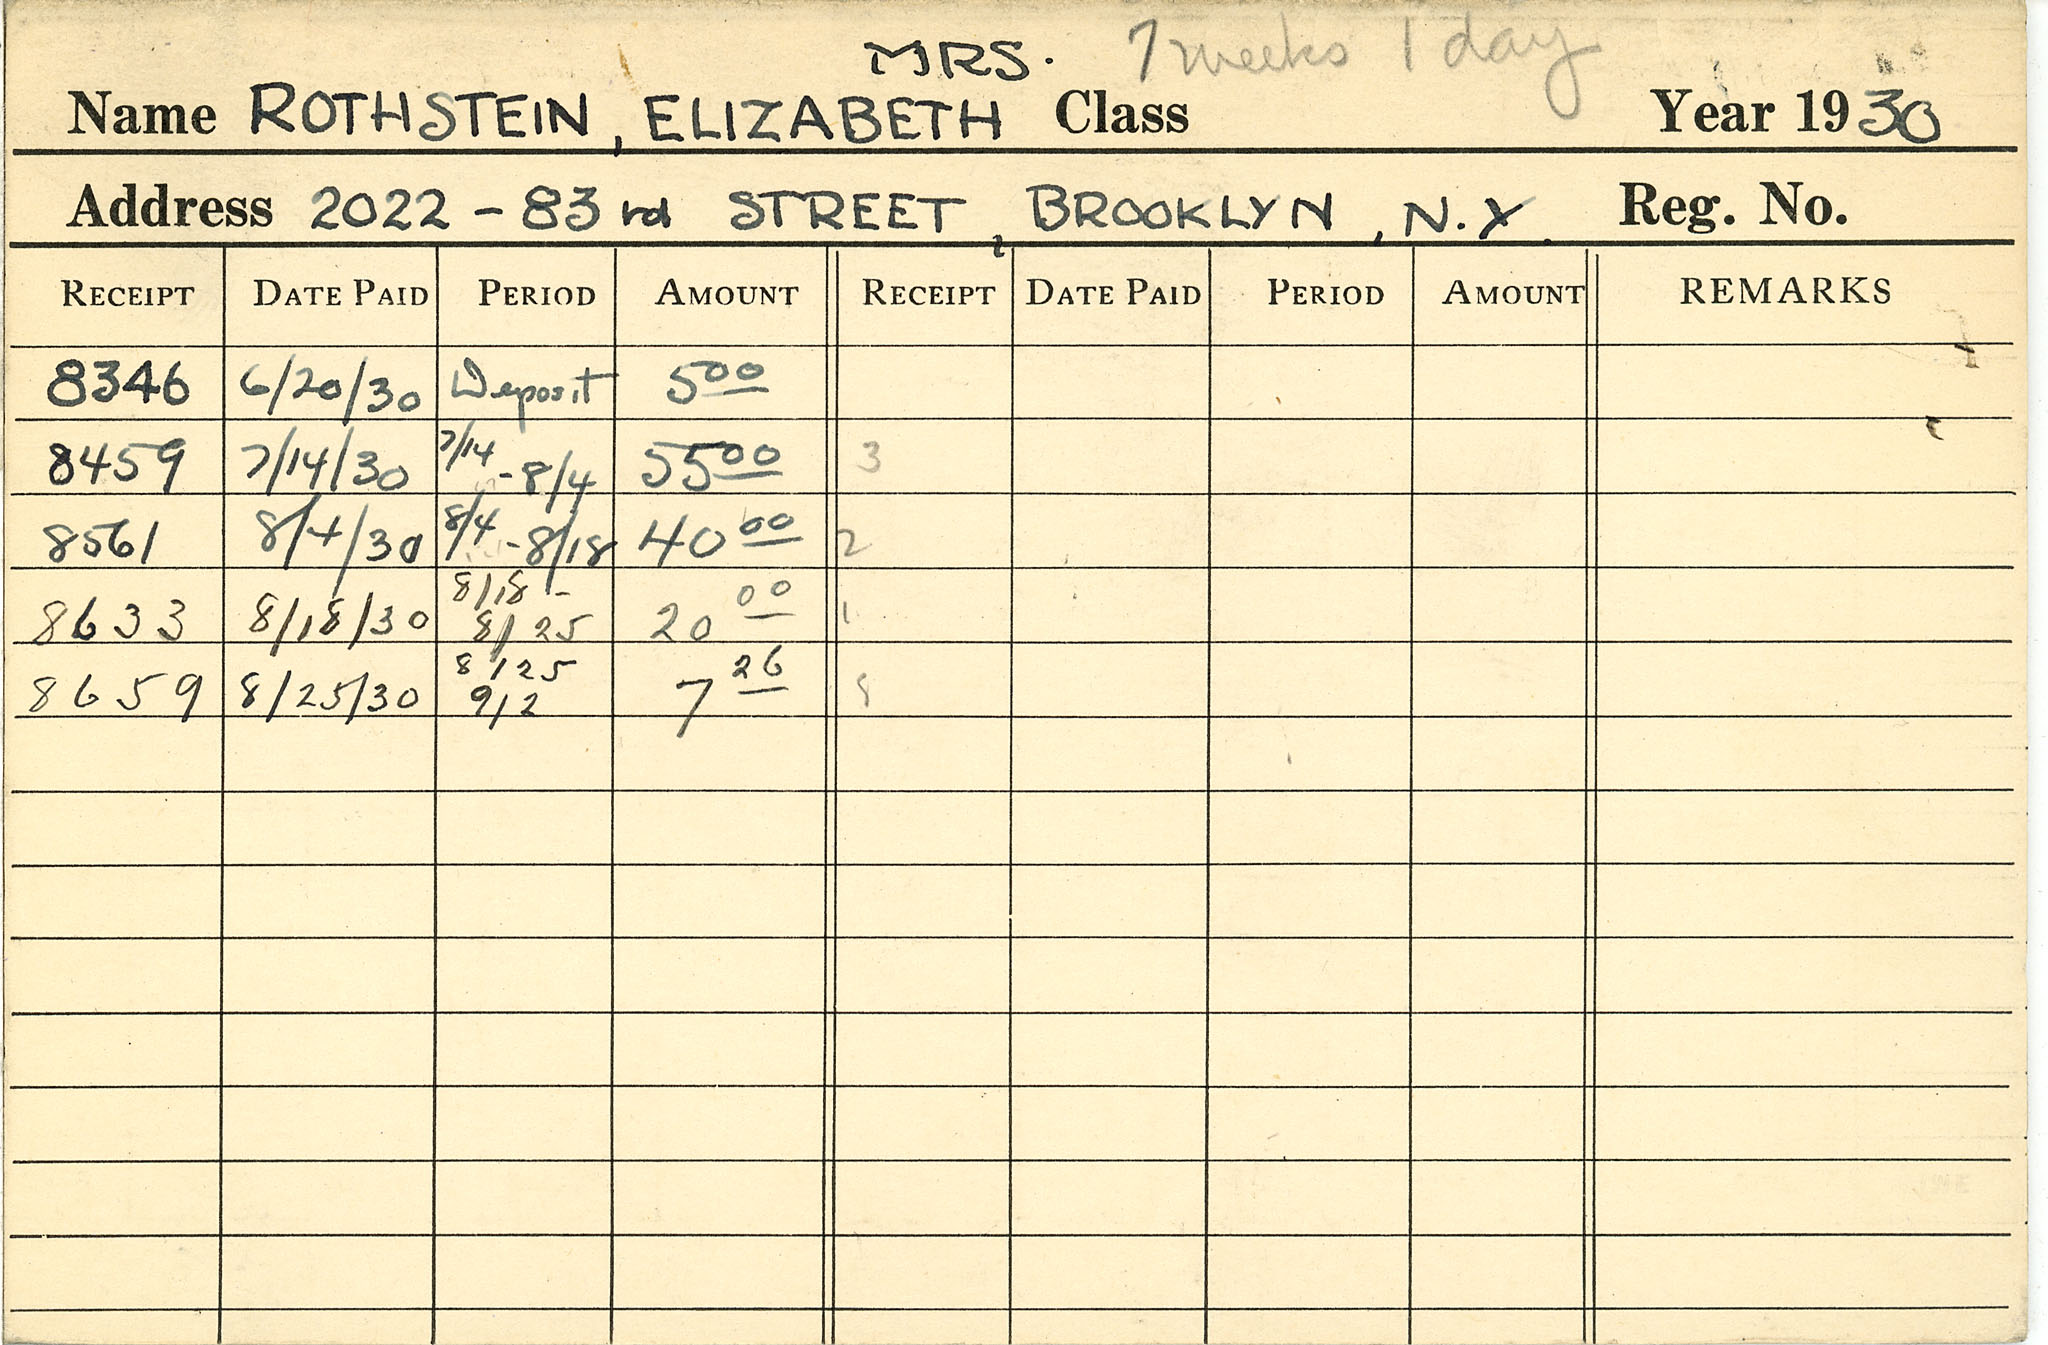 MRS. 7 weeks 1 day
Name ROTHSTEIN, ELIZABETH Class Year 1930
Address 2022 - 83rd STREET, BROOKLYN, N.Y. Reg. No.
RECEIPT DATE PAID PERIOD AMOUNT RECEIPT DATE PAID PERIOD AMOUNT REMARKS
8346 6/20/30 Deposit 5 00
8459 7/14/30 7/14 - 8/4 55 00 3
8561 8/4/30 8/4 - 8/18 40 00 2
8633 8/18/30 8/18 - 8/25 20 00 1
8659 8/25/30 8/25 9/2 7 26